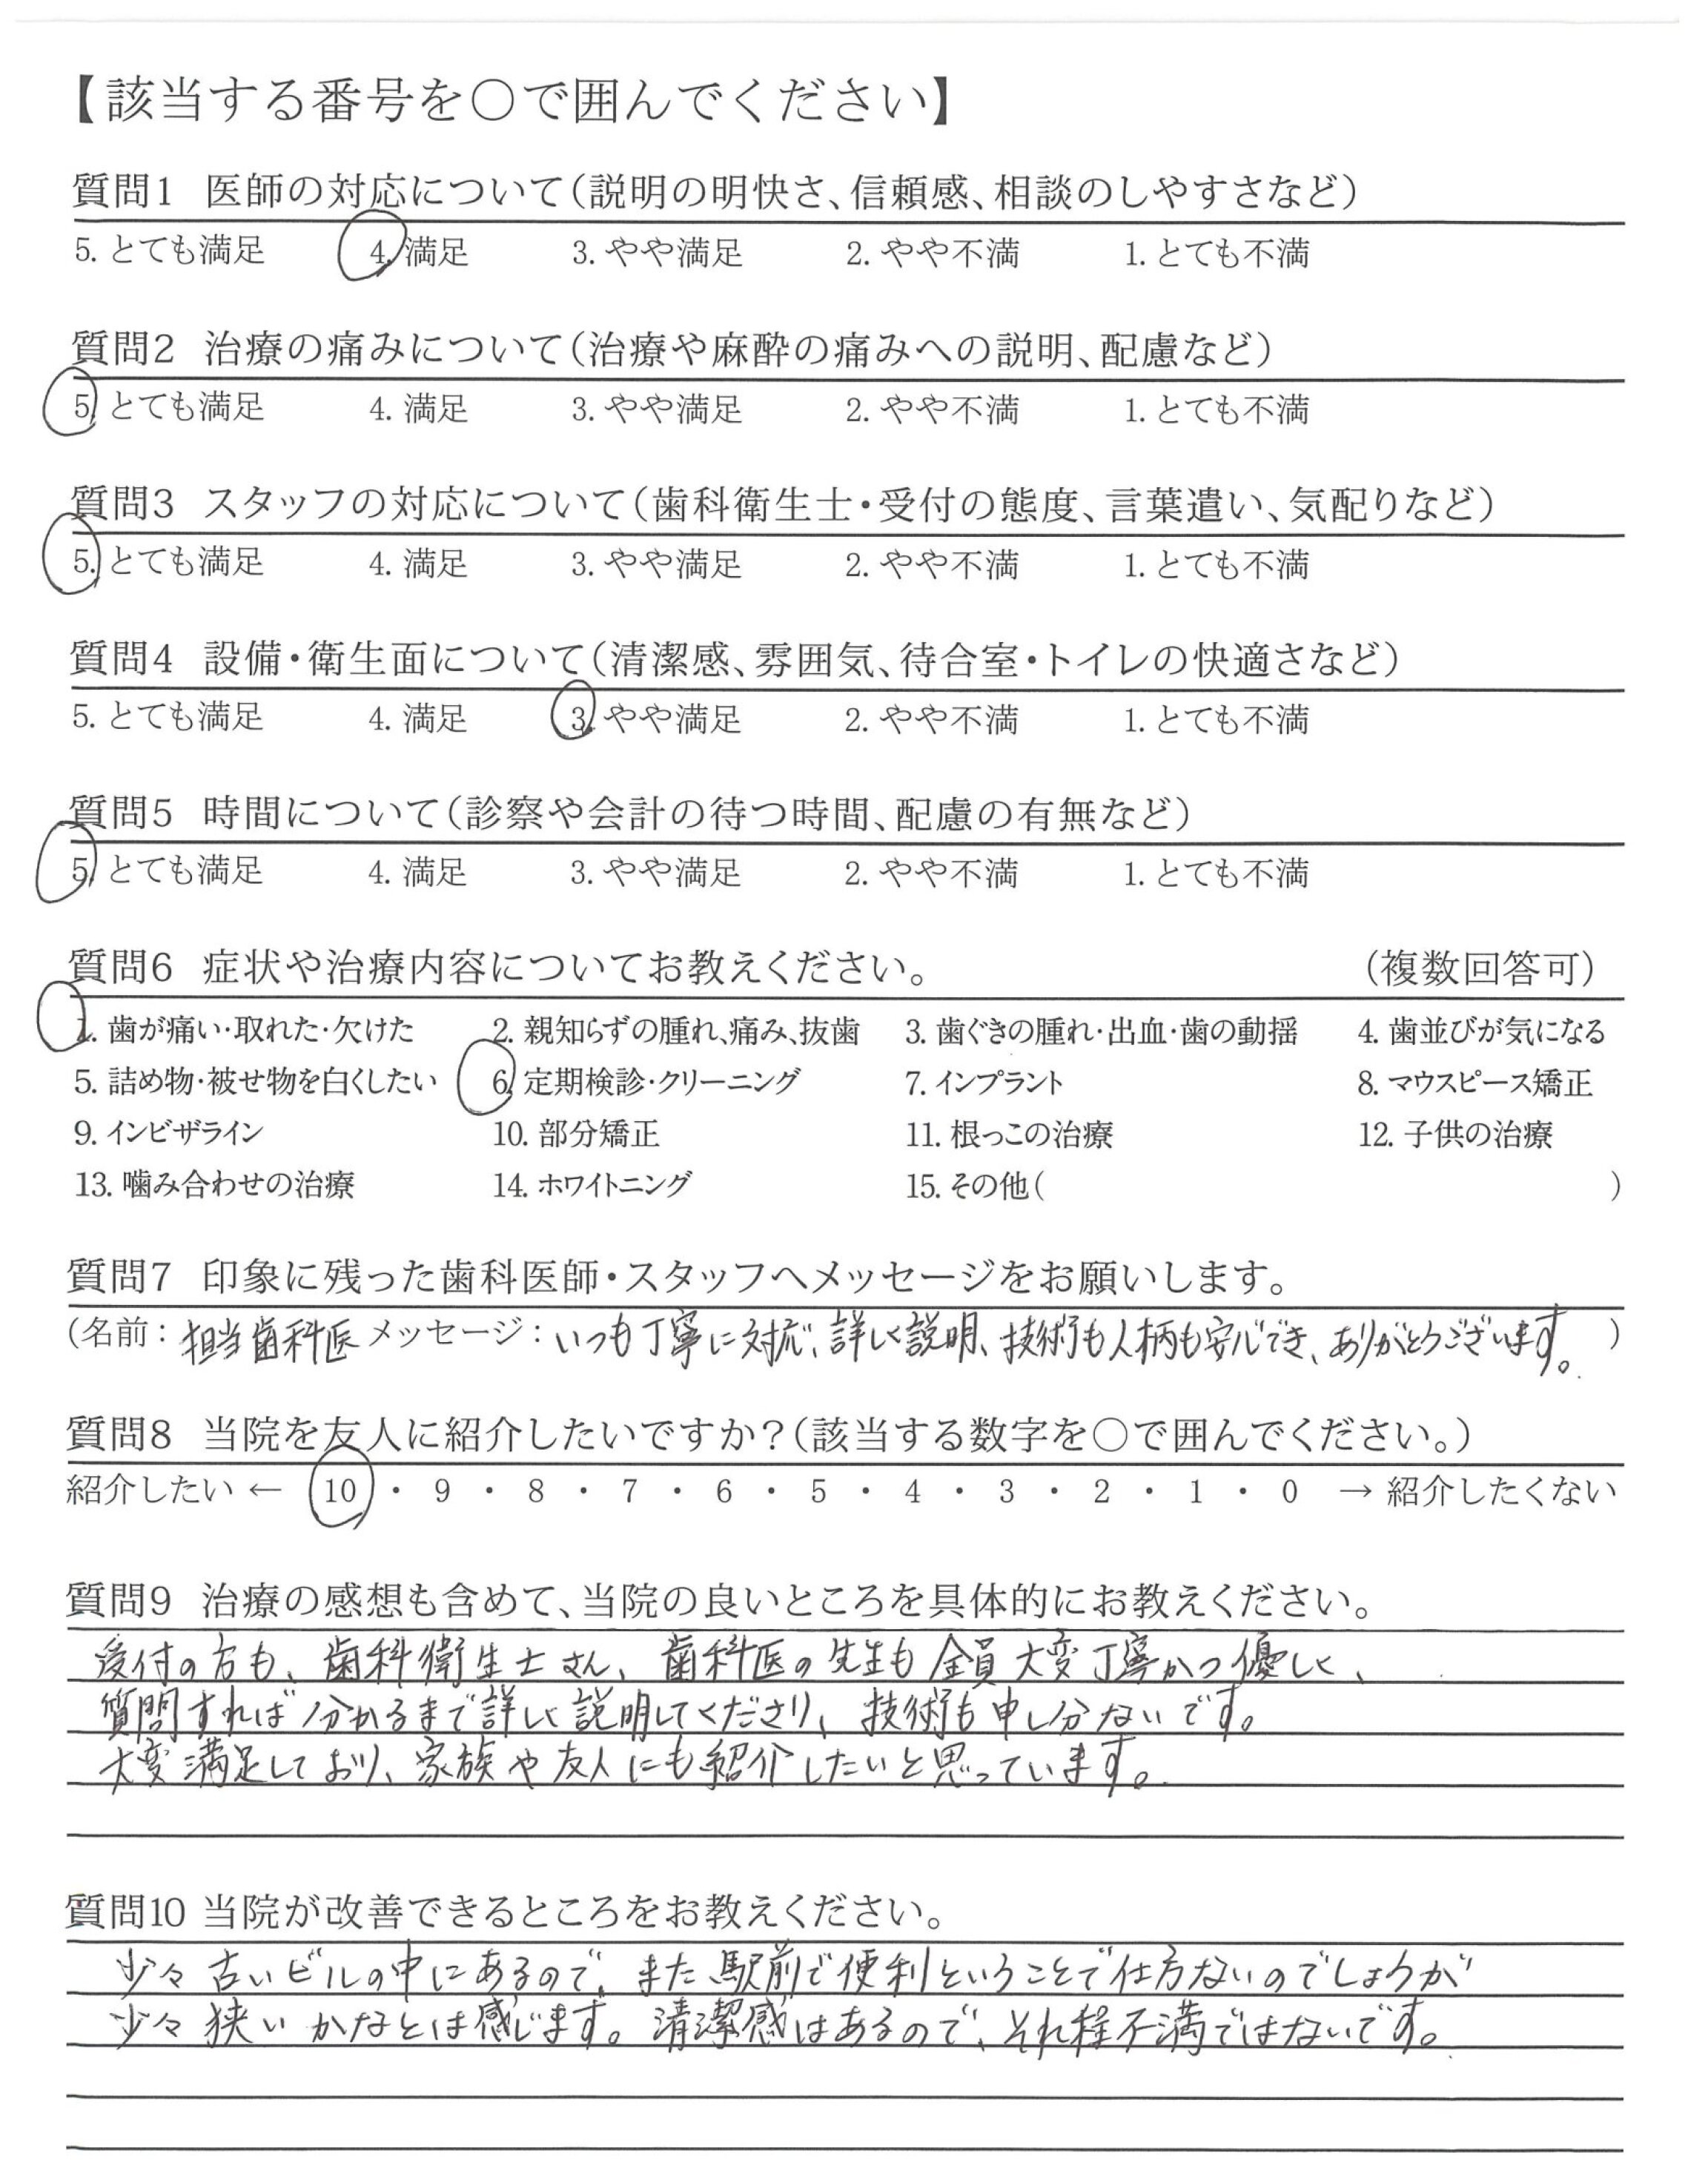 【該当する番号を○で囲んでください】
質問1 医師の対応について(説明の明快さ、信頼感、相談のしやすさなど)
5. とても満足 4. 満足 3. やや満足 2. やや不満 1. とても不満
質問2 治療の痛みについて(治療や麻酔の痛みへの説明、配慮など)
5. とても満足 4. 満足 3. やや満足 2. やや不満 1. とても不満
質問3 スタッフの対応について(歯科衛生士・受付の態度、言葉遣い、気配りなど)
5. とても満足 4. 満足 3. やや満足 2. やや不満 1. とても不満
質問4 設備・衛生面について(清潔感、雰囲気、待合室・トイレの快適さなど)
5. とても満足 4. 満足 3. やや満足 2. やや不満 1. とても不満
質問5 時間について(診察や会計の待つ時間、配慮の有無など)
5. とても満足 4. 満足 3. やや満足 2. やや不満 1. とても不満
質問6 症状や治療内容についてお教えください。 (複数回答可)
1. 歯が痛い・取れた・欠けた 2. 親知らずの腫れ、痛み、抜歯 3. 歯ぐきの腫れ・出血・歯の動揺 4. 歯並びが気になる
5. 詰め物・被せ物を白くしたい 6. 定期検診・クリーニング 7. インプラント 8. マウスピース矯正
9. インビザライン 10. 部分矯正 11. 根っこの治療 12. 子供の治療
13. 噛み合わせの治療 14. ホワイトニング 15. その他( )
質問7 印象に残った歯科医師・スタッフへメッセージをお願いします。
(名前:担当歯科医 メッセージ:いつも丁寧に対応、詳しく説明、技術も人柄も安心でき、ありがとうございます。)
質問8 当院を友人に紹介したいですか?(該当する数字を○で囲んでください。)
紹介したい ← 10 ・ 9 ・ 8 ・ 7 ・ 6 ・ 5 ・ 4 ・ 3 ・ 2 ・ 1 ・ 0 → 紹介したくない
質問9 治療の感想も含めて、当院の良いところを具体的にお教えください。
受付の方も、歯科衛生士さん、歯科医の先生も全員大変丁寧かつ優しく、
質問すれば分かるまで詳しく説明してくださり、技術も申し分ないです。
大変満足しており、家族や友人にも紹介したいと思っています。
質問10 当院が改善できるところをお教えください。
少々古いビルの中にあるので、また駅前で便利ということで仕方ないのでしょうが
少々狭いかなとは感じます。清潔感はあるので、それ程不満ではないです。